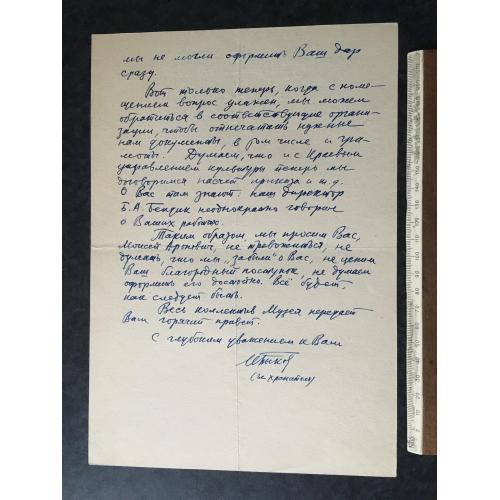 мы не могли оформить Ваш дар
сразу.
Вот только теперь, когда с поме-
щением вопрос улажен, мы можем
обратиться в соответствующие органи-
зации, чтобы отпечатать нужные
нам документы, в том числе и гра-
моты. Думаем, что и с Краевым
управлением культуры теперь мы
договоримся насчет приказа и т.д.
О Вас там знают, наш директор
Б.А. неоднократно говорил
о Ваших работах.
Таким образом, мы просим Вас,
Моисей, не тревожиться, не
думать, что мы „забыли" о Вас, не ценим
Ваш благородный поступок, не думаем
оформить его достойно. Всё будет,
как следует быть.
Весь коллектив Музея передает
Вам горячий привет.
С глубоким уважением к Вам
хранитель)